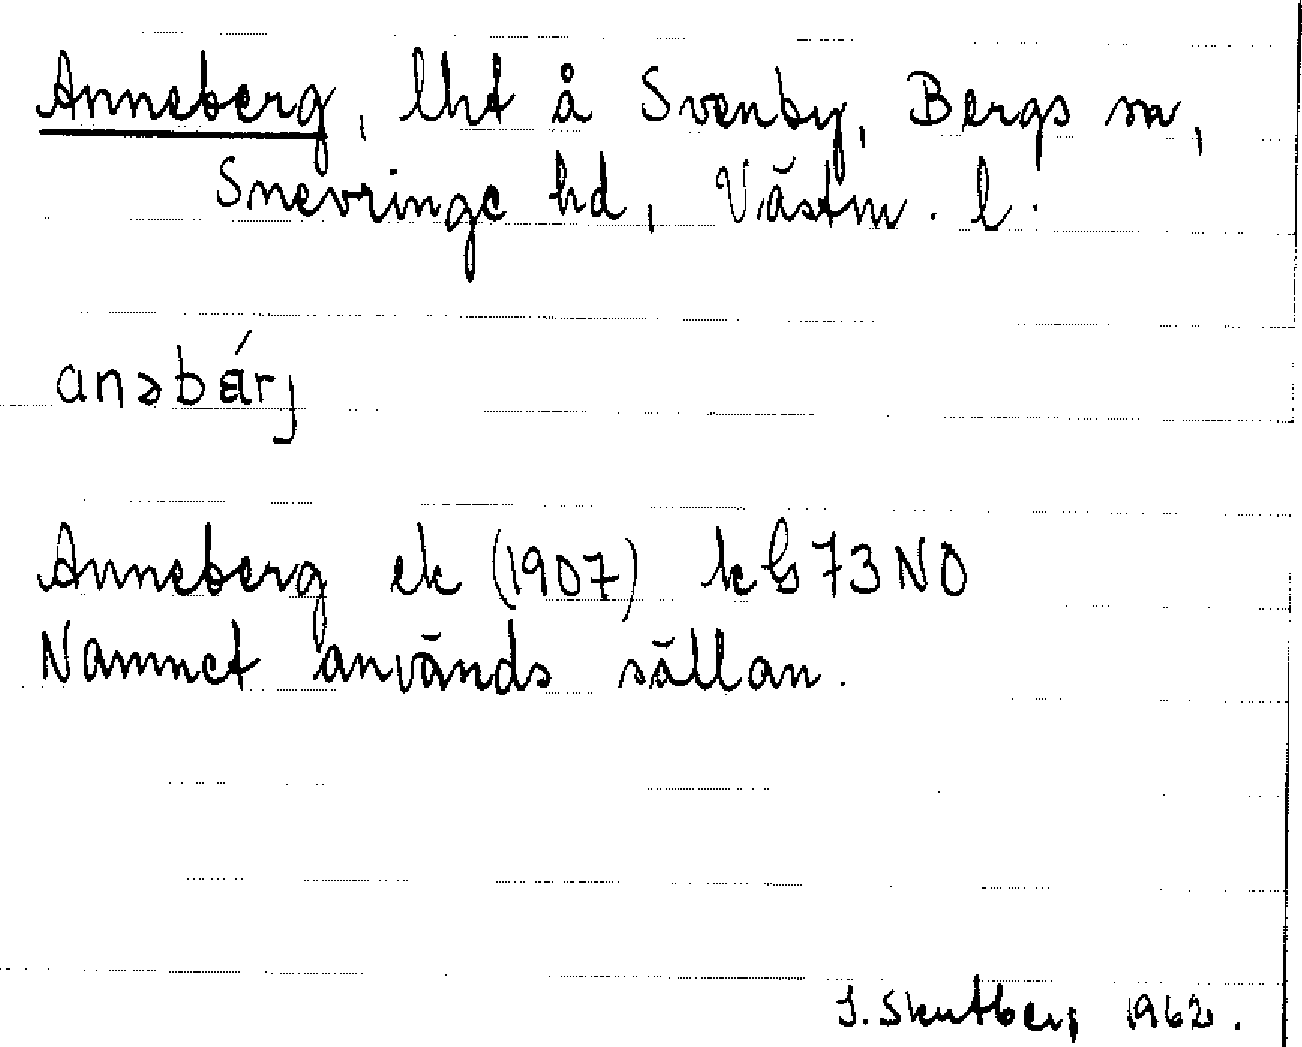 Anneberg, lht å Svenby, Bergs sn,
Snevringe hd, Västm. l.
anəbárj
Anneberg ek (1907) kb 73 NO
Namnet används sällan.
J. Skutberg 1962.